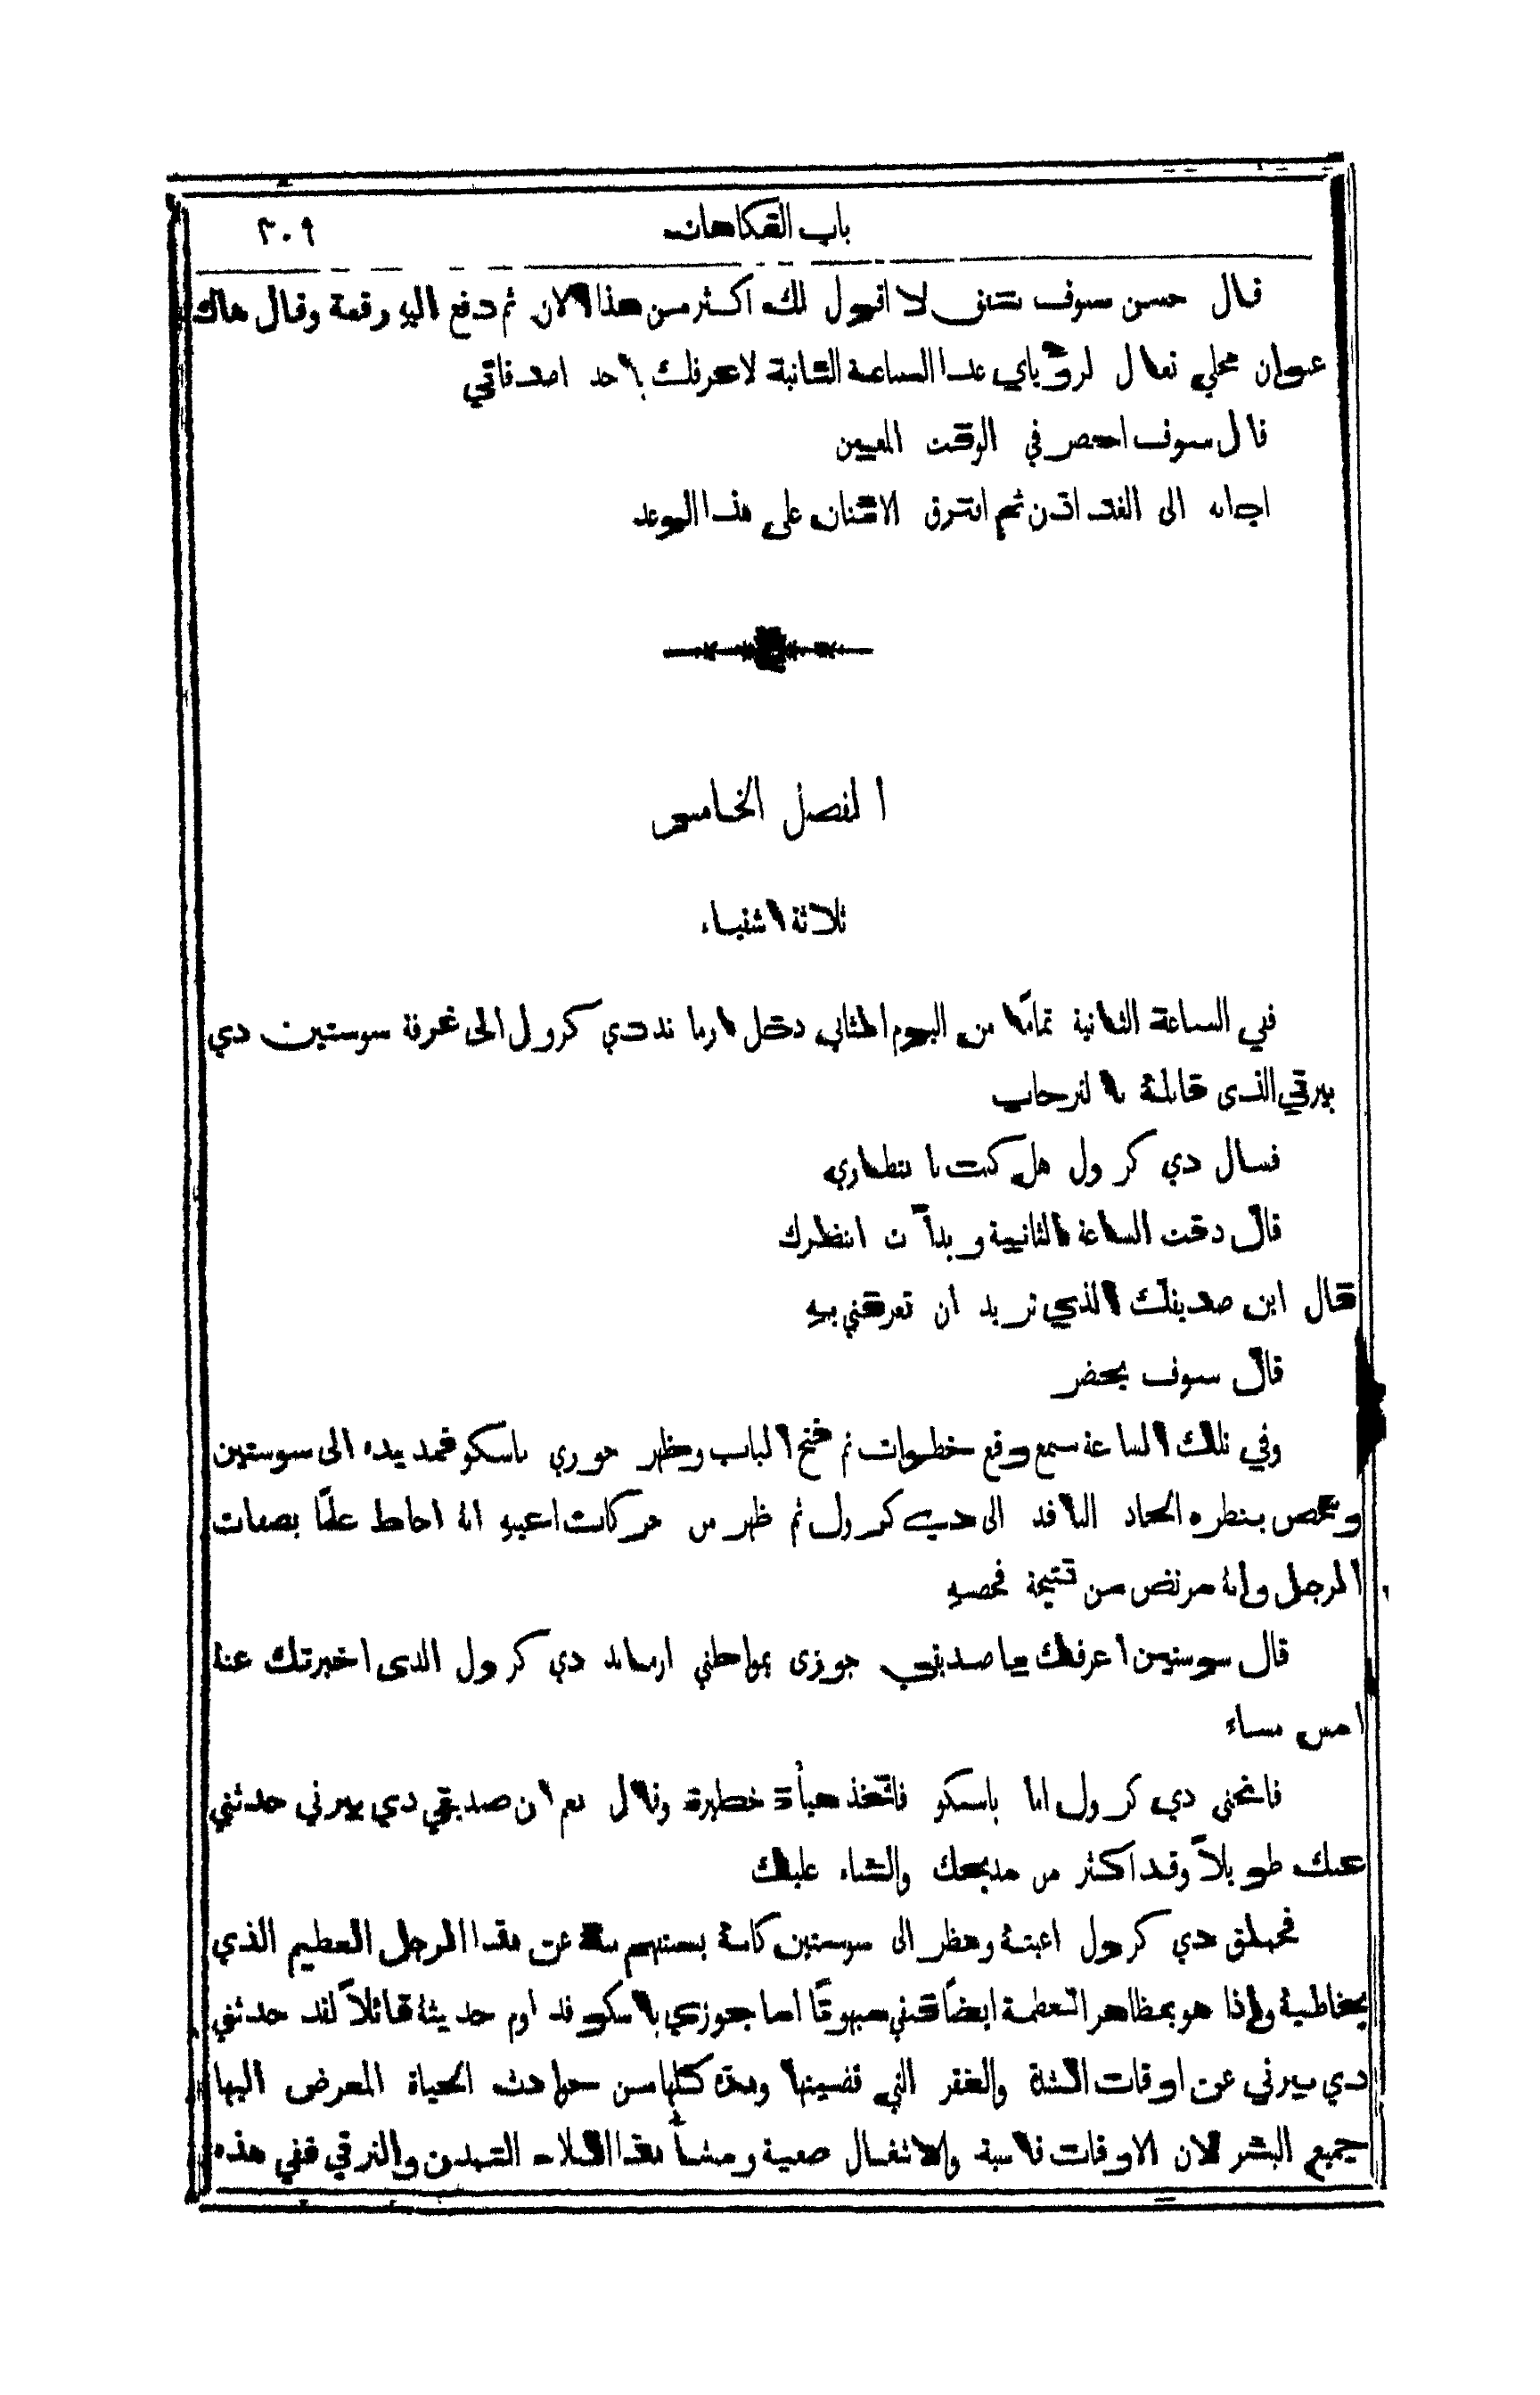 باب الفكاهات ٣٠٩
قال حسن سوف لا اقول لك اكثر من هذا الان ثم دفع اليه رقعة وقال هاك
عنوان محلي تعال لرؤياي غدا الساعة الثانية لاعرفك باحد اصدقائي
قال سوف احضر في الوقت المعين
اجابه الى الغد اذن ثم افترق الاثنان على هذا الوعد
الفصل الخامس
ثلاثة اشقياء
في الساعة الثانية تمامًا من اليوم التالي دخل ارماند دي كرول الى غرفة سوستين دي
بيرني الذي قابله بالترحاب
فسال دي كرول هل كنت بانتظاري
قال دقت الساعة الثانية وبدأت انتظرك
قال اين صديقك الذي تريد ان تعرفني به
قال سوف يحضر
وفي تلك الساعة سمع وقع خطوات ثم فتح الباب وظهر جوزي باسكو فمد يده الى سوستين
وتفحص بنظره الحاد النافذ الى دي كرول ثم ظهر من حركات اعينه انه احاط علمًا بصفات
الرجل وانه مرتض من نتيجة فحصه
قال سوستين اعرفك يا صديقي جوزي بمواطني ارماند دي كرول الذي اخبرتك عنه
امس مساء
فانحنى دي كرول اما باسكو فاتخذ هيأة خطيرة وقال نعم ان صديقي دي بيرني حدثني
عنك طويلاً وقد اكثر من مديحك والثناء عليك
فحملق دي كرول اعينه ونظر الى سوستين كانه يستفهم منه عن هذا الرجل العظيم الذي
يخاطبه واذا هو بمظاهر العظمة ايضًا فبقي مبهوتًا اما جوزي باسكو فداوم حديثه قائلاً لقد حدثني
دي بيرني عن اوقات الشدة والفقر التي قضيتها وهذه كلها من حوادث الحياة المعرض اليها
جميع البشر لان الاوقات قاسية والاشغال صعبة ومنشأ هذا البلاء التمدن والترقي ففي هذه